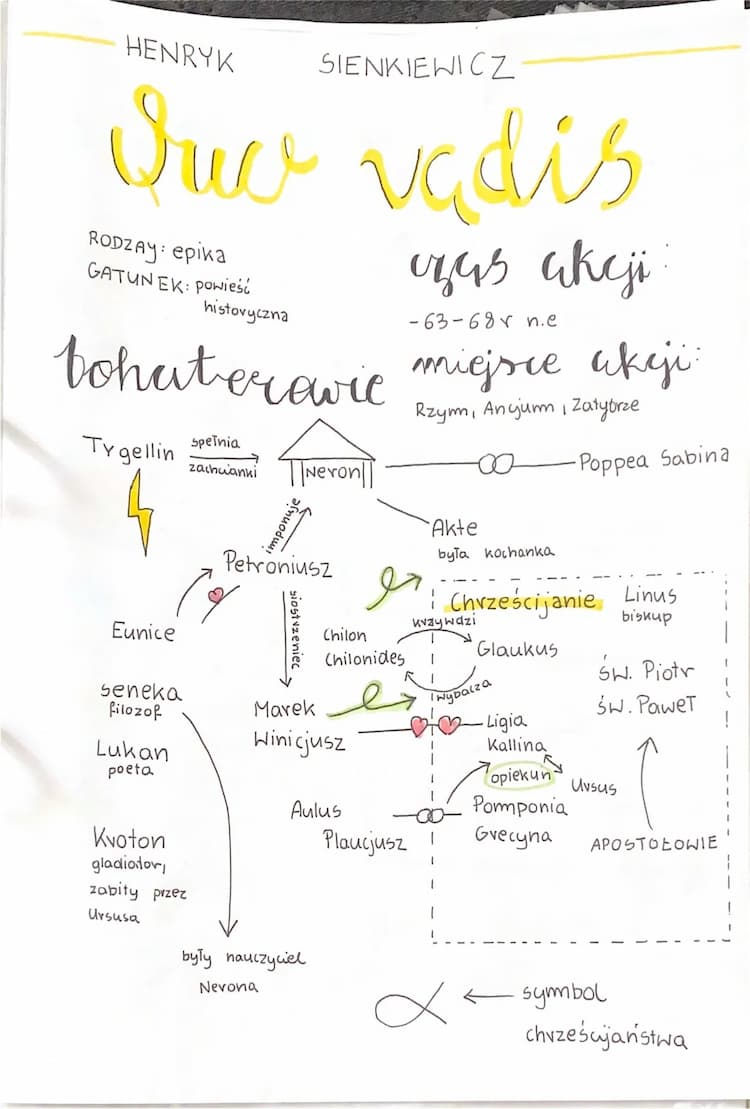 HENRYK SIENKIEWICZ
Quo vadis
RODZAY: epika
GATUNEK: powieść
historyczna
czas akcji:
-63-68 r n.e
miejsce akcji:
Rzym, Ancjum, Zatybrze
bohaterowie
Tygellin
spełnia
zachcianki
Neron
Poppea Sabina
imponuje
Akte
była kochanka
Petroniusz
Eunice
siostrzeniec
Chrześcijanie
Linus
biskup
krzywdzi
Chilon
Chilonides
Glaukus
wybacza
św. Piotr
św. Paweł
Seneka
filozof
Marek
Winicjusz
Ligia
Kallina
Lukan
poeta
opiekun
Ursus
Aulus
Plaucjusz
Pomponia
Grecyna
APOSTOŁOWIE
Kroton
gladiator,
zabity przez
Ursusa
były nauczyciel
Nerona
symbol
chrześcijaństwa